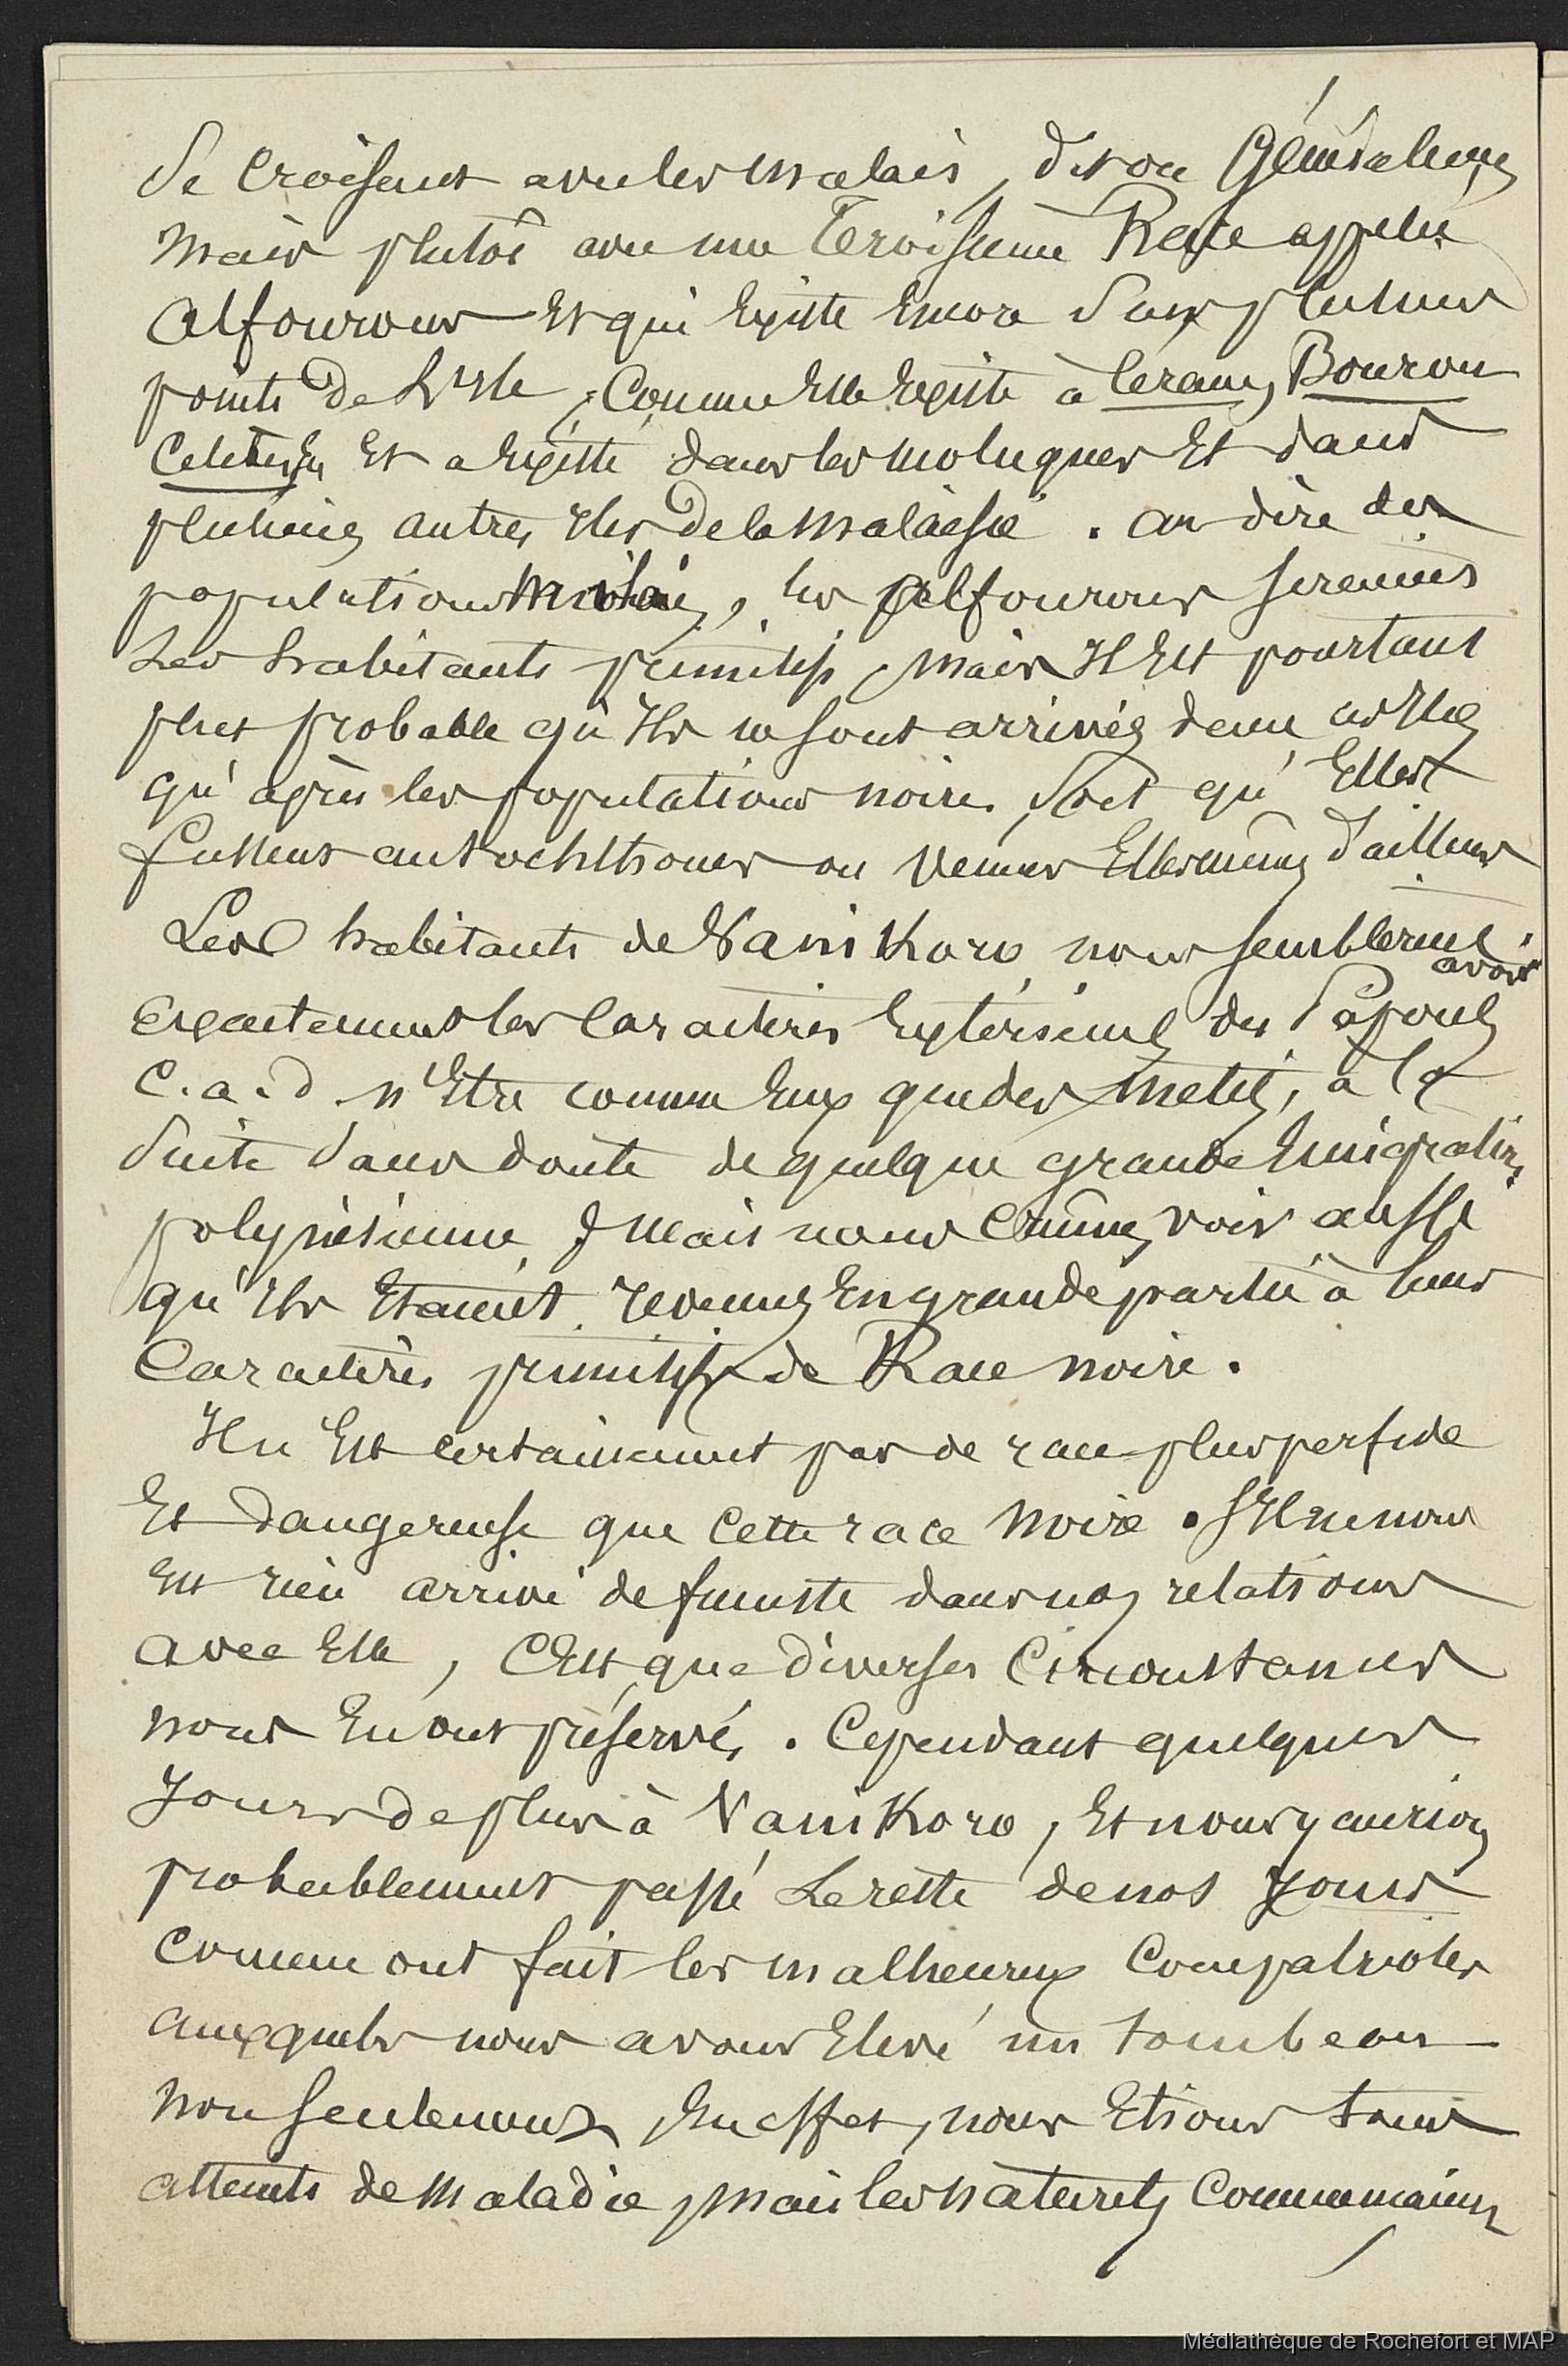 Se croisent avec les Malais, dit on Généralement
Mais plutôt avec une Troisieme Race appelée
Alfourous et qui Existe Encore Dans plusieurs
points De L'Isle, Comme Elle Existe à Ceram, Bourou
Celebes, Et a Existé dans les Moluques Et dans
plusieurs autres Iles De la Malaisie. au dire des
populations Malaises, les Alfourous seraient
Les habitants primitifs, Mais Il Est pourtant
plus probable qu'Ils ne sont arrivés dans ces Iles
qu'après les populations noires, Soit qu'Elles
fussent autochthones ou Venues Elles mêmes d'ailleurs
Les habitants de Vanikoro nous semblerent avoir
Exactement les Caracteres Exterieurs des Papous
C.a.d. n'Etre comme Eux que des Metis, à la
Suite Sans doute de quelque grande Emigration
polynésienne. Mais nous Crûmes voir aussi
qu'Ils Etaient revenus En grande partie à leurs
Caractères primitifs de Race noire.
Il n'Est certainement pas de race plus perfide
Et Dangereuse que Cette race Noire. S'Il ne nous
Est rien arrivé de funeste dans nos relations
avec Elle, C'Est que diverses Circonstances
nous En ont préservés. Cependant quelques
Jours de plus à Vanikoro, Et nous y aurions
probablement passé Le reste de nos Jours
Comme ont fait les malheureux Compatriotes
auxquels nous avons Elevé un tombeau
Non seulement, En effet, nous Etions tous
atteints de Maladie, Mais les Naturels Commencaient
Médiathèque de Rochefort et MAP